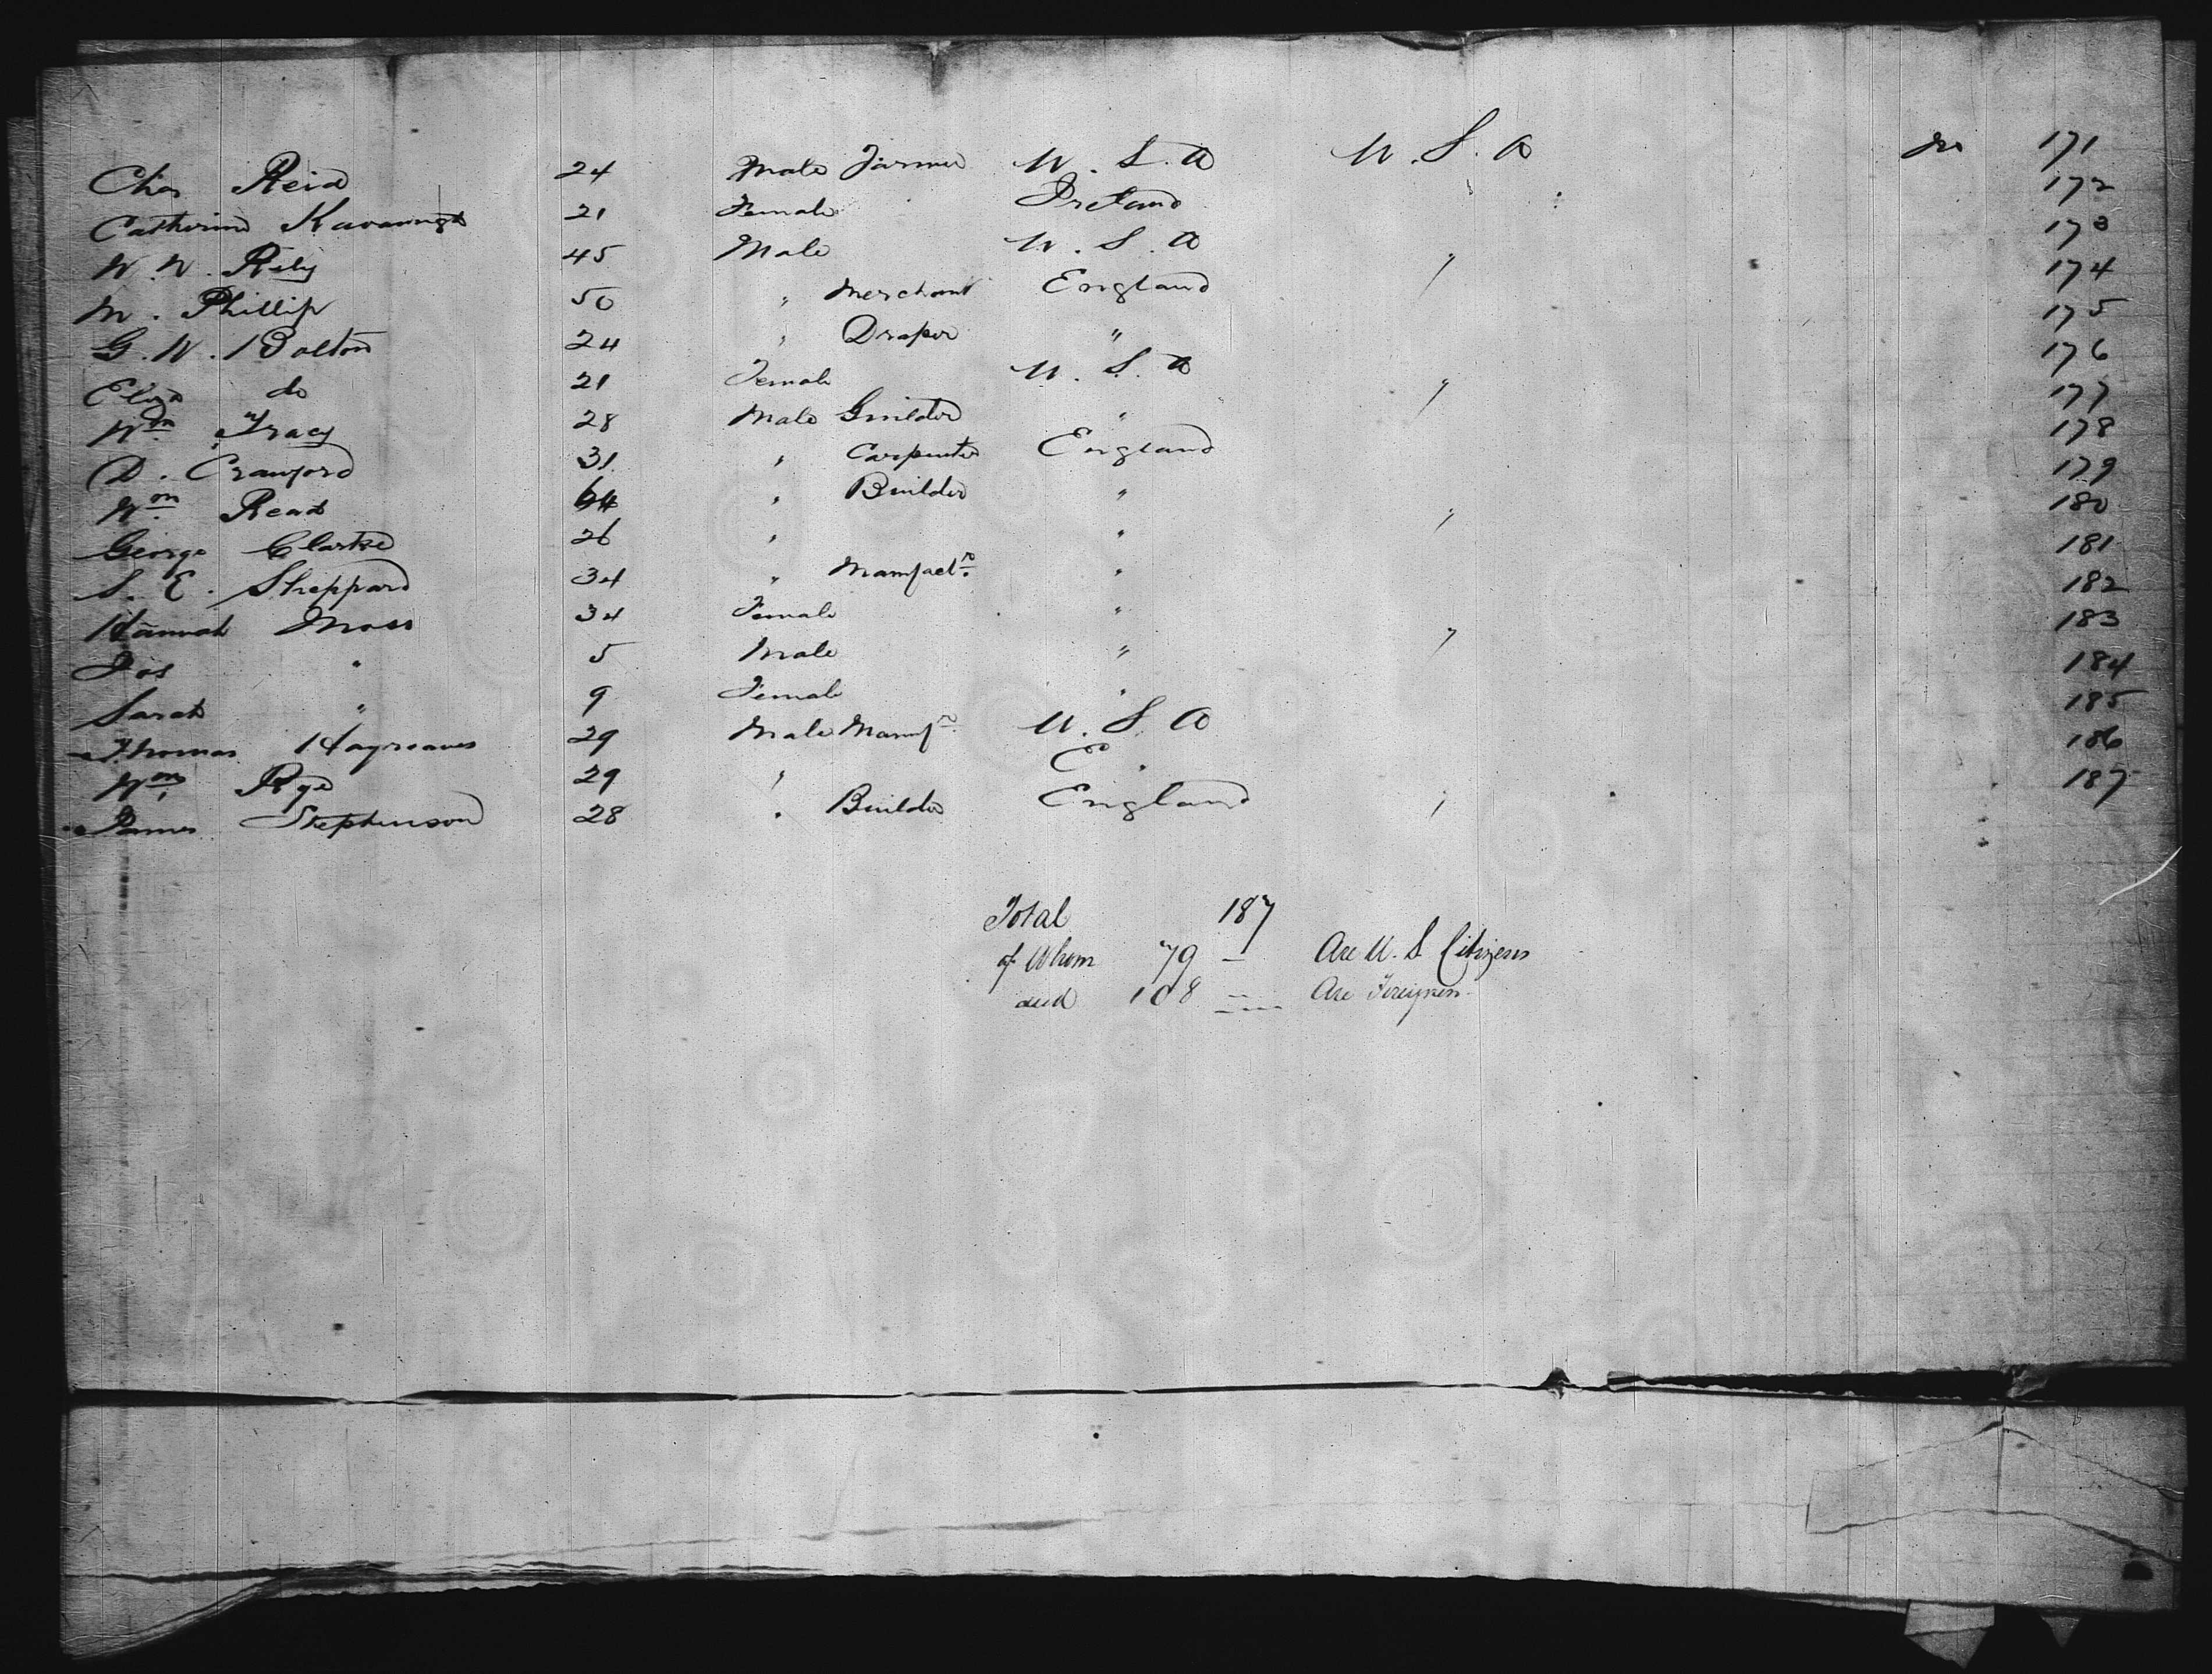 Chas Reid 24 Male Farmer U. S. A U. S. A 171
Catherine Kavanagh 21 Female Ireland 172
W. W. Rily 45 Male U. S. A " 173
M. Phillip 50 " Merchant England 174
G. W. Bolton 24 " Draper " 175
Eliza do 21 Female U. S. A " 176
Wm Tracy 28 Male Guilder " 177
D. Crawford 31 " Carpenter England 178
Wm Read 64 " Builder " 179
George Clarke 26 " " " 180
S. E. Sheppard 34 " Manfactr " 181
Hannah Moss 34 Female " 182
Jos " 5 Male " " 183
Sarah " 9 Female " 184
Thomas Haygreaves 29 Male Manfr U. S. A 185
Wm Rye 29 " E. 186
James Stephenson 28 " Builder England " 187
Total 187
of Whom 79 — Are U. S Citizens
and 108 — Are Foreigners